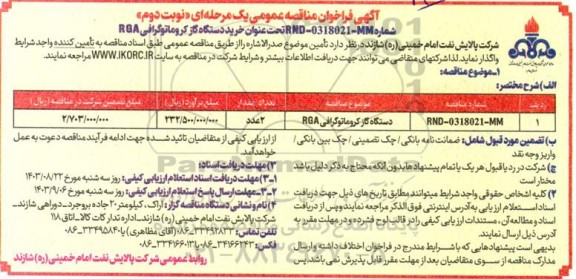 آگهی فراخوان مناقصه عمومی یک مرحله‌ای «نوبت دوم»
شماره RND-0318021-MM تحت عنوان خرید دستگاه گاز کروماتوگرافی RGA
شرکت پالایش نفت امام خمینی (ره) شازند در نظر دارد تأمین موضوع صدرالاشاره را از طریق مناقصه عمومی طبق اسناد مناقصه به تأمین کننده واجد شرایط
واگذار نماید. لذا شرکتهای متقاضی می توانند جهت دریافت اطلاعات بیشتر و شرایط شرکت در مناقصه به سایت WWW.IKORC.IR مراجعه نمایند.
۱-موضوع مناقصه:
الف) شرح مختصر:
ردیف شماره مناقصه موضوع مناقصه تعداد/مقدار مبلغ برآورد (ریال) مبلغ تضمین شرکت در مناقصه (ریال)
۱ RND-0318021-MM دستگاه گاز کروماتوگرافی RGA ۲عدد ۲۳۲/۵۰۰/۰۰۰/۰۰۰ ۲/۷۰۳/۰۰۰/۰۰۰
ب) تضمین مورد قبول شامل: ضمانت نامه بانکی / چک تضمینی / چک بین بانکی /
واریز وجه نقد
ج) شرکت در رد یا قبول هر یک یا تمام پیشنهادها بدون آنکه محتاج به ذکر دلیل باشد
مختار است
۲) کلیه اشخاص حقوقی واجد شرایط میتوانند مطابق تاریخ های ذیل جهت دریافت
اسناد استعلام ارزیابی به آدرس اینترنتی فوق الذکر مراجعه نمایند و پس از دریافت
اسناد و مطالعه آن، مستندات ارزیابی کیفی را در قالب لوح فشرده و در مهلت مقرر به
آدرس ذیل ارسال نمایند.
بدیهی است پیشنهادهایی که با شرایط مندرج در فراخوان اختلاف داشته و ارسال
مدارک مناقصه از سوی متقاضیان بعد از مهلت مقرر قابل پذیرش نمی باشد. پس
از ارزیابی کیفی از متقاضیان تائید شده جهت ادامه فرآیند مناقصه دعوت به عمل
خواهد آمد.
۳) مهلت دریافت اسناد:
۳-۱) مهلت دریافت اسناد استعلام ارزیابی کیفی: روز سه شنبه مورخ ۱۴۰۳/۰۸/۲۲
۳-۲) مهلت ارسال پاسخ استعلام ارزیابی کیفی: روز سه شنبه مورخ ۱۴۰۳/۹/۰۶
۴) نام و نشانی دستگاه مناقصه گزار: اراک، کیلومتر ۲۰ جاده بروجرد، دوراهی شازند،
شرکت پالایش نفت امام خمینی (ره) شازند، اداره تدارکات کالا، اتاق ۱۱۸
روابط عمومی شرکت پالایش نفت امام خمینی (ره) شازند